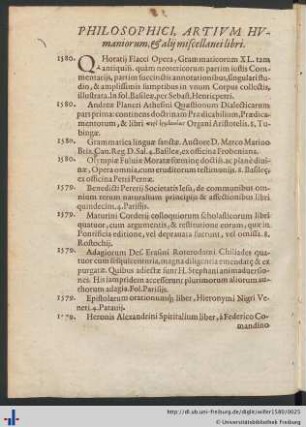 PHILOSOPHICI, ARTIVM HV-
maniorum, & alij miscellanei libri.
1580. Q Horatij Flacci Opera, Grammaticorum XL. tam
antiquiss. quàm neotericorum partim iustis Com-
mentarijs, partim succinctis annotationibus, singulari stu-
dio, & amplissimis sumptibus in vnum Corpus collectis,
illustrata. In fol. Basileæ, per Sebast. Henricpetri.
1580. Andreæ Planeri Athesini Quæstionum Dialecticarum
pars prima: continens doctrinam Prædicabilium, Prædica-
mentorum, & libri Organi Aristotelis. 8. Tu-
bingæ.
1580. Grammatica linguæ sanctæ. Auctore D. Marco Marino
Brix. Can. Reg. D. Sal. 4. Basileæ, ex officina Frobeniana.
1580. Olympiæ Fuluiæ Moratæ fœminæ doctiss. ac planè diui-
næ, Opera omnia, cum eruditorum testimonijs. 8. Basileæ,
ex officina Petri Pernæ.
1579. Benedicti Pererij Societatis Iesu, de communibus om-
nium rerum naturalium principijs & affectionibus libri
quindecim. 4. Parisijs.
1579. Maturini Corderij colloquiorum scholasticorum libri
quatuor, cum argumentis, & restitutione eorum, quæ in
Pontificia editione, vel deprauata fuerunt, vel omissa. 8.
Rostochij.
1579. Adagiorum Des. Erasmi Roterodami Chiliades qua-
tuor cum sesquicenturia, magna diligentia emendatæ & ex-
purgatæ. Quibus adiectæ sunt H. Stephani animaduersio-
nes. His iampridem accesserunt plurimorum aliorum au-
thorum adagia. Fol. Parisijs.
1579. Epistolarum orationumq; liber, Hieronymi Nigri Ve-
neti. 4. Patauij.
1579. Heronis Alexandrini Spiritalium liber, à Federico Co-
mandino
http://digi.ub.uni-freiburg.de/diglit/willer1580/0025
© Universitätsbibliothek Freiburg
DFG